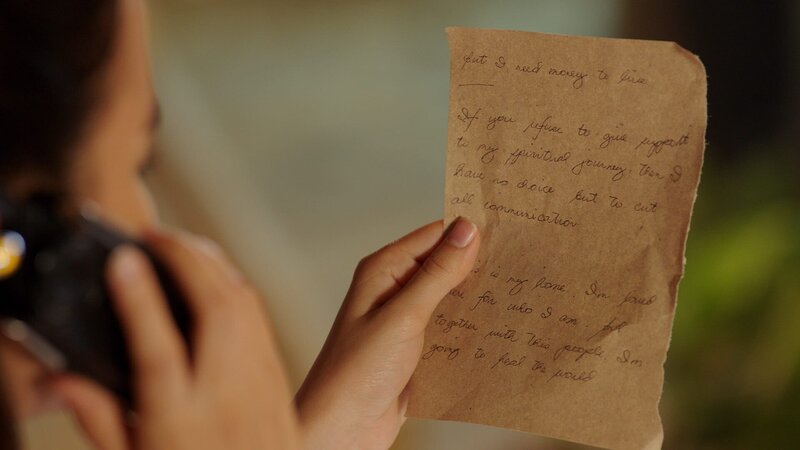 But I need money to live
If you refuse to give support
to my spiritual journey, then I
have no choice but to cut
all communication
is my home. I'm loved
for who I am.
together with this people, I'm
going to heal the world